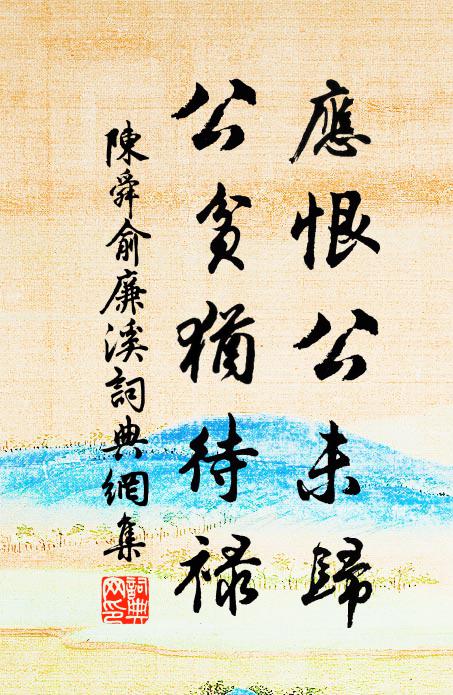 應恨公未歸
公貧猶待祿
陳舜俞廉溪詞典網集